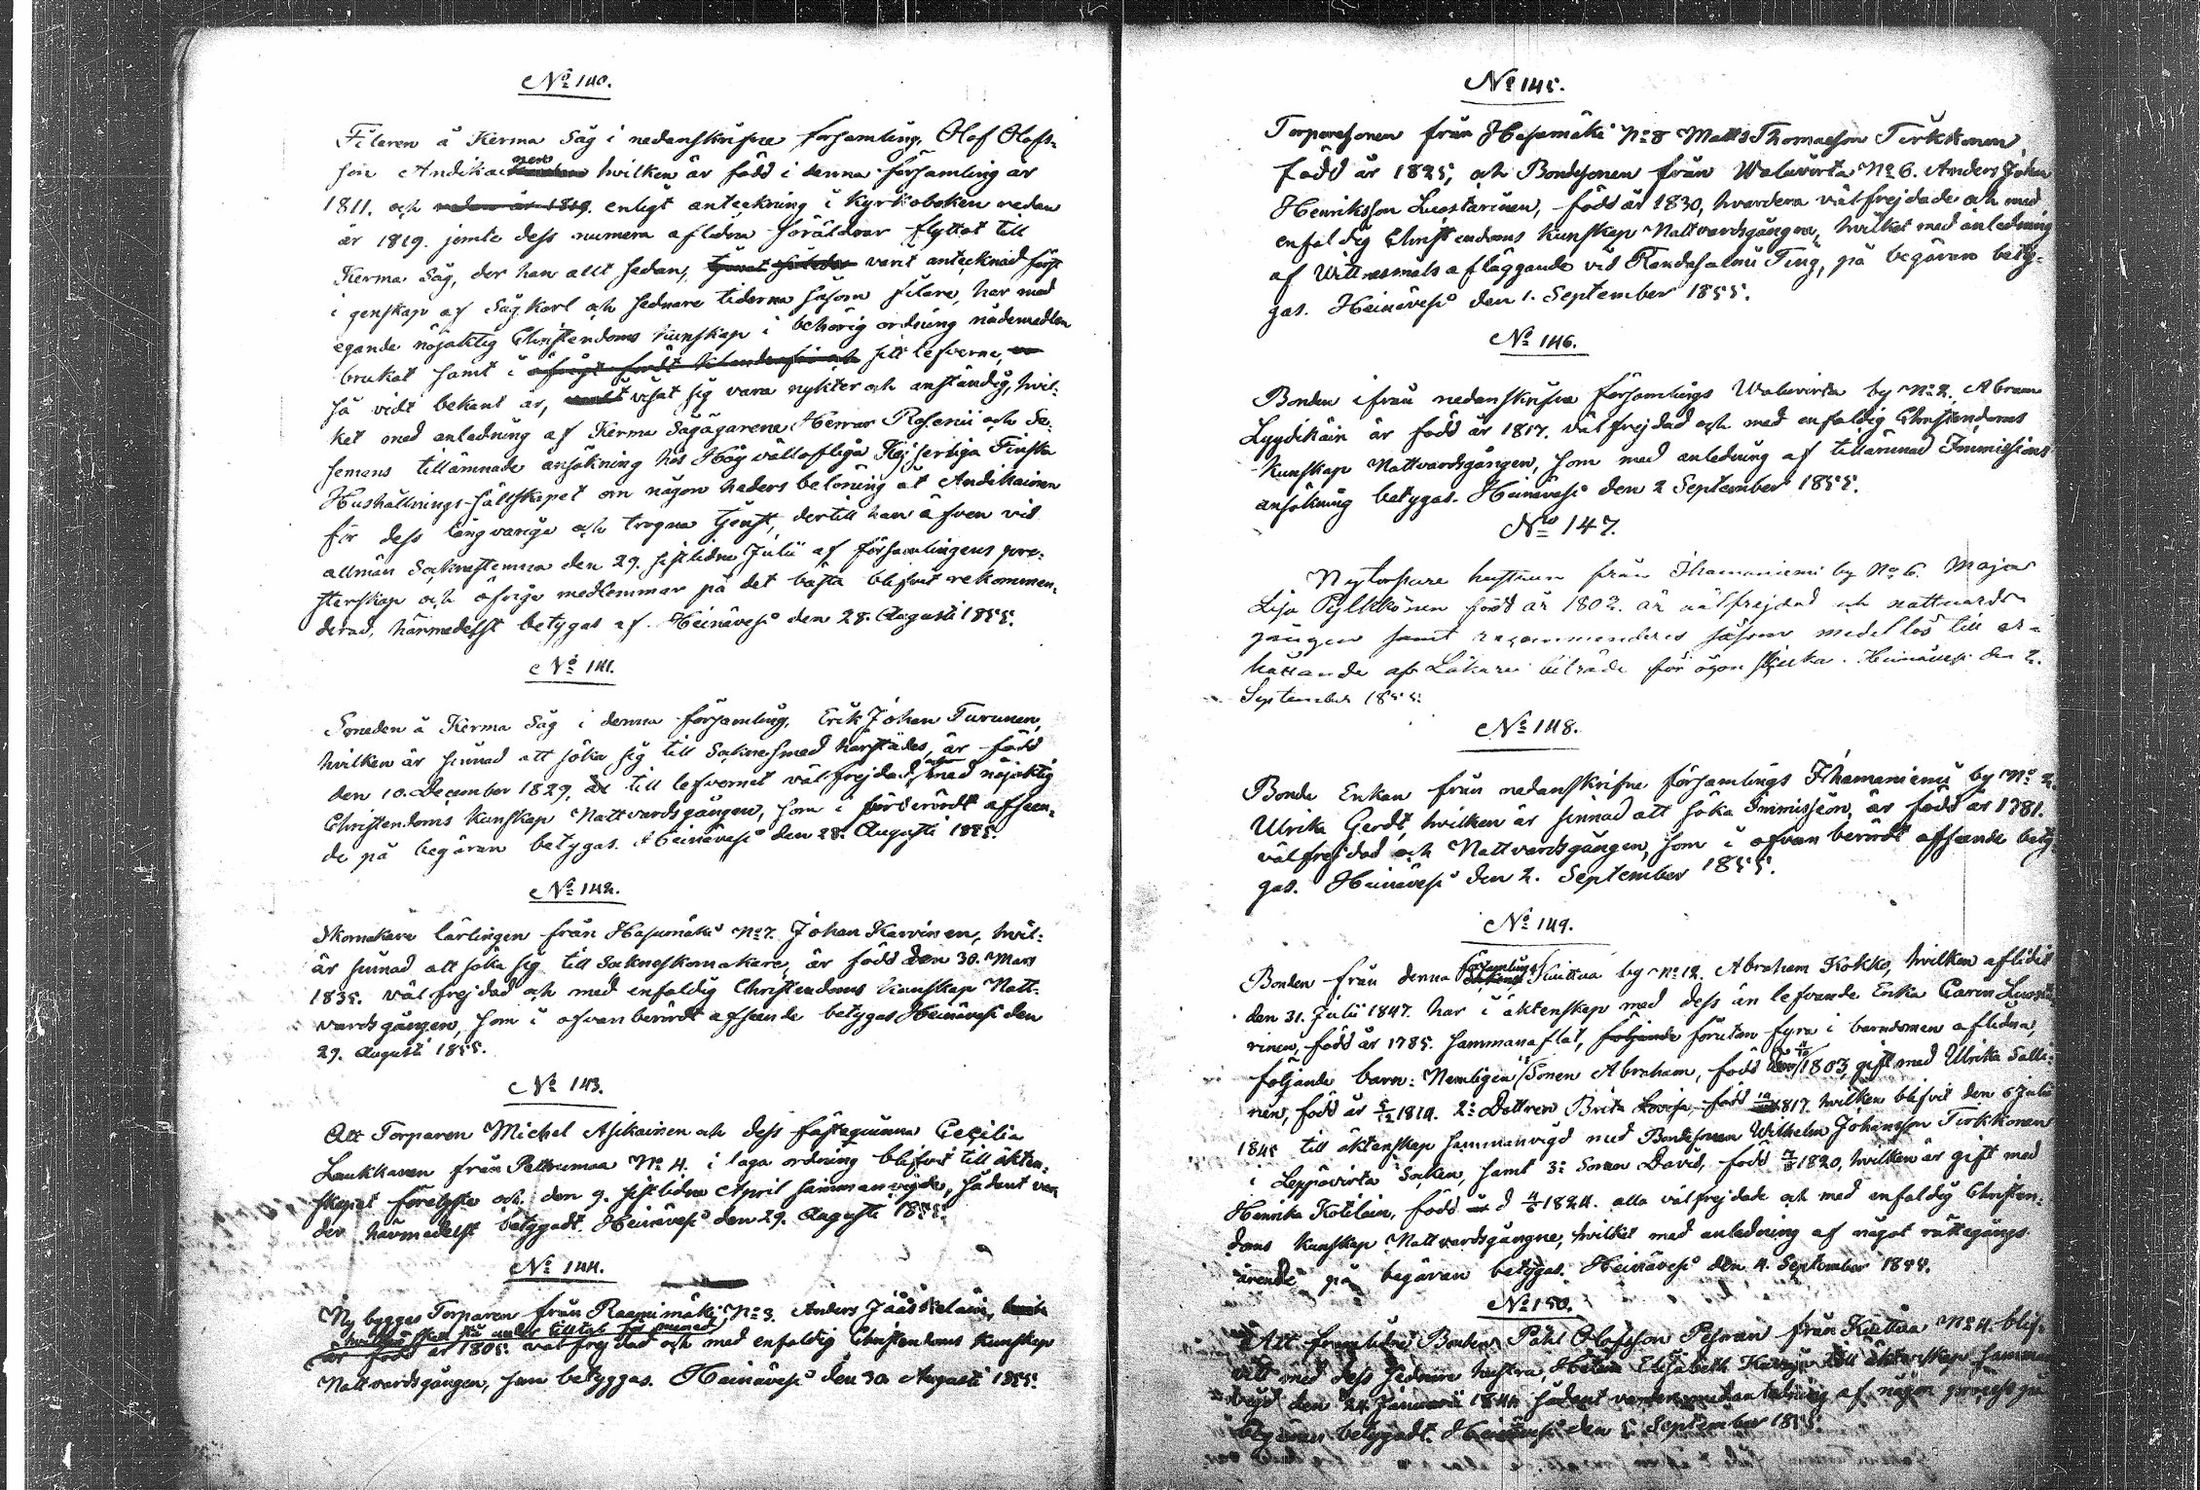 No 140.
Filaren å Kerma Såg i nedanskrifne församling, Olof Olofs-
son Andikainen hvilken är född i denna församling år
1811. och enligt anteckning i Kyrkoboken redan
år 1819. jemte dess numera aflidna föräldrar flyttat till
Kerma Såg, der han allt sedan, varit antecknad först
i genskap af Sågkarl och sednare tiderna såsom filare, har med
egande nöjaktig Christendoms kunskap i behörig ordning nådemedlen
brukat samt i sitt lefverne,
så vidt bekant är, visat sig vara nykter och anständig, hvil-
ket med anledning af Kerma Sågägarene Herrar Rosenii och Se-
semans tillämnade ansökning hos Högvällofliga Kejserliga Finska
Hushållnings-Sällskapet om någon heders belöning åt Andikainen
för dess långvariga och trogna tjenst, dertill han äfven vid
allmän Sockenstemma den 29. sistlidne Julii af församlingens före-
sterskap och öfriga medlemmar på det bästa blifvit rekommen-
derad, härmedelst betygas af. Heinävesi den 28. Augusti 1855.
No 141.
Smeden å Kerma Såg i denna församling, Erik Johan Turunen,
hvilken är sinnad att söka sig till Sockne smed härstädes, är född
den 10. December 1829, till lefvernet välfrejdad, med nöjaktig
Christendoms kunskap Nattvardsgången, som i förberördt afseen-
de på begäran betygas. Heinävesi den 28. Augusti 1855.
No 142.
Skomakare lärlingen från Hasumäki No 7. Johan Karvinen, hvil-
är sinnad att söka sig till Sockneskomakare, är född den 30. Mars
1835. välfrejdad och med enfaldig Christendoms kunskap Natt-
vardsgången, som i ofvanberördt afseende betygas Heinävesi den
29. Augusti 1855.
No 143.
Att Torparen Michel Asikainen och dess fästeqvinna Cecilia
Laukkanen från Petrumaa No 4. i laga ordning blifvit till äkten-
skapet förelyste och den 9. sistlidne April sammanvigde, sådant var-
der härmedelst betygadt. Heinävesi den 29. Augusti 1855.
No 144.
Nybygges Torparen från Raamimäki No 3. Anders Jääskeläin,
född år 1805 välfrejdad och med enfaldig Christendoms kunskap
Nattvardsgången, som betygas. Heinävesi den 30 Augusti 1855.
No 145.
Torparesonen från Hasumäki No 8 Matts Thomasson Tirkkonen,
född år 1825, och Bondesonen från Waluvirta No 6. Anders Johan
Henriksson Luostarinen, född år 1830, hvardera välfrejdade och med
enfaldig Christendoms kunskap Nattvardsgångne, hvilket med anledning
af Vittnesmåls afläggande vid Randasalmi Ting, på begäran bety-
gas. Heinävesi den 1. September 1855.
No 146.
Bonden ifrån nedanskrifne församlings Waluvirta by No 2. Abram
Lyydikäin är född år 1817. välfrejdad och med enfaldig Christendoms
kunskap Nattvardsgången, som med anledning af tillämnad Immissions
ansökning betygas. Heinävesi den 2 September 1855.
No 147.
Nytorpare hustrun från Ihamaniemi by No 6. Maja
Lisa Pylkkönen född år 1802. är välfrejdad och nattvards
gången samt recommenderas såsom medellös till er-
hållande af Läkare biträde för ögon sjuka. Heinävesi den 2.
September 1855.
No 148.
Bonde Enkan från nedanskrifne församlings Ihamaniemi by No 2.
Ulrika Gerdt, hvilken är sinnad att söka Immission, är född år 1781.
välfrejdad och Nattvardsgången, som i ofvan berördt afseende bety
gas. Heinävesi den 2. September 1855.
No 149.
Bonden från denna församlings Kuittua by No 12. Abraham Kokko, hvilken aflidit
den 31. Julii 1847. har i äktenskap med dess än lefvande Enka Carin Luosta
rinen, född år 1785. sammanaflat, förutan fyra i barndomen aflidna,
följande barn: Nemligen Sonen Abraham, född 1803, gift med Ulrika Salli-
nen, född år 1814. 2: Dottren Brita Lovisa, född 1817. hvilken blifvit den 6 Julii
1845 till äktenskap sammanvigd med Bondesonen Wilhelm Johansson Tirkkonen
i Leppävirta Socken, samt 3: Sonen David, född 1820, hvilken är gift med
Henrika Kotilain, född 1824. alla välfrejdade och med enfaldig Christen-
doms kunskap Nattvardsgångne, hvilket med anledning af något rättegångs
ärende på begäran betygas. Heinävesi den 4. September 1855.
No 150.
Att framlidne Bonden Påhl Olofsson Pesonen från Kuittua No 4. blif-
vit med dess sednare hustru, Elisabeth till äktenskap samman
vigd den 24. Januarii 1844 sådant varder med anledning af någon
begäran betygadt. Heinävesi den 5. September 1855.